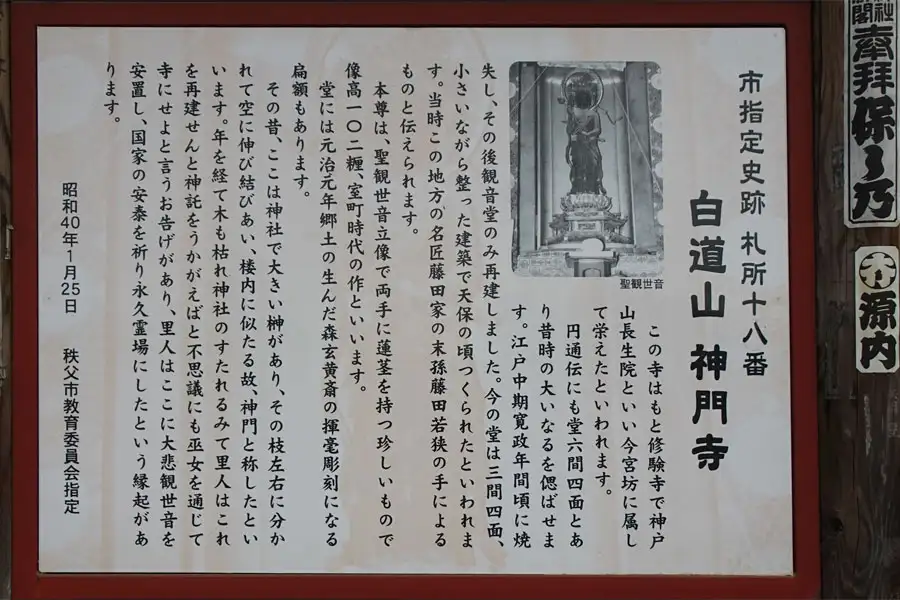 市指定史跡 札所十八番
白道山 神門寺
この寺はもと修験寺で神戸
山長生院といい今宮坊に属し
て栄えたといわれます。
円通伝にも堂六間四面とあ
り昔時の大いなるを偲ばせま
す。江戸中期寛政年間頃に焼
失し、その後観音堂のみ再建しました。今の堂は三間四面、
小さいながら整った建築で天保の頃つくられたといわれま
す。当時この地方の名匠藤田家の末孫藤田若狭の手による
ものと伝えられます。
本尊は、聖観世音立像で両手に蓮茎を持つ珍しいもので
像高一〇二糎、室町時代の作といいます。
堂には元治元年郷土の生んだ森玄黄斎の揮毫彫刻になる
扁額もあります。
その昔、ここは神社で大きい榊があり、その枝左右に分か
れて空に伸び結びあい、楼内に似たる故、神門と称したとい
います。年を経て木も枯れ神社のすたれるみて里人はこれ
を再建せんと神託をうかがえばと不思議にも巫女を通じて
寺にせよと言うお告げがあり、里人はここに大悲観世音を
安置し、国家の安泰を祈り永久霊場にしたという縁起があ
ります。
昭和40年1月25日 秩父市教育委員会指定
聖観世音
奉拝
源内